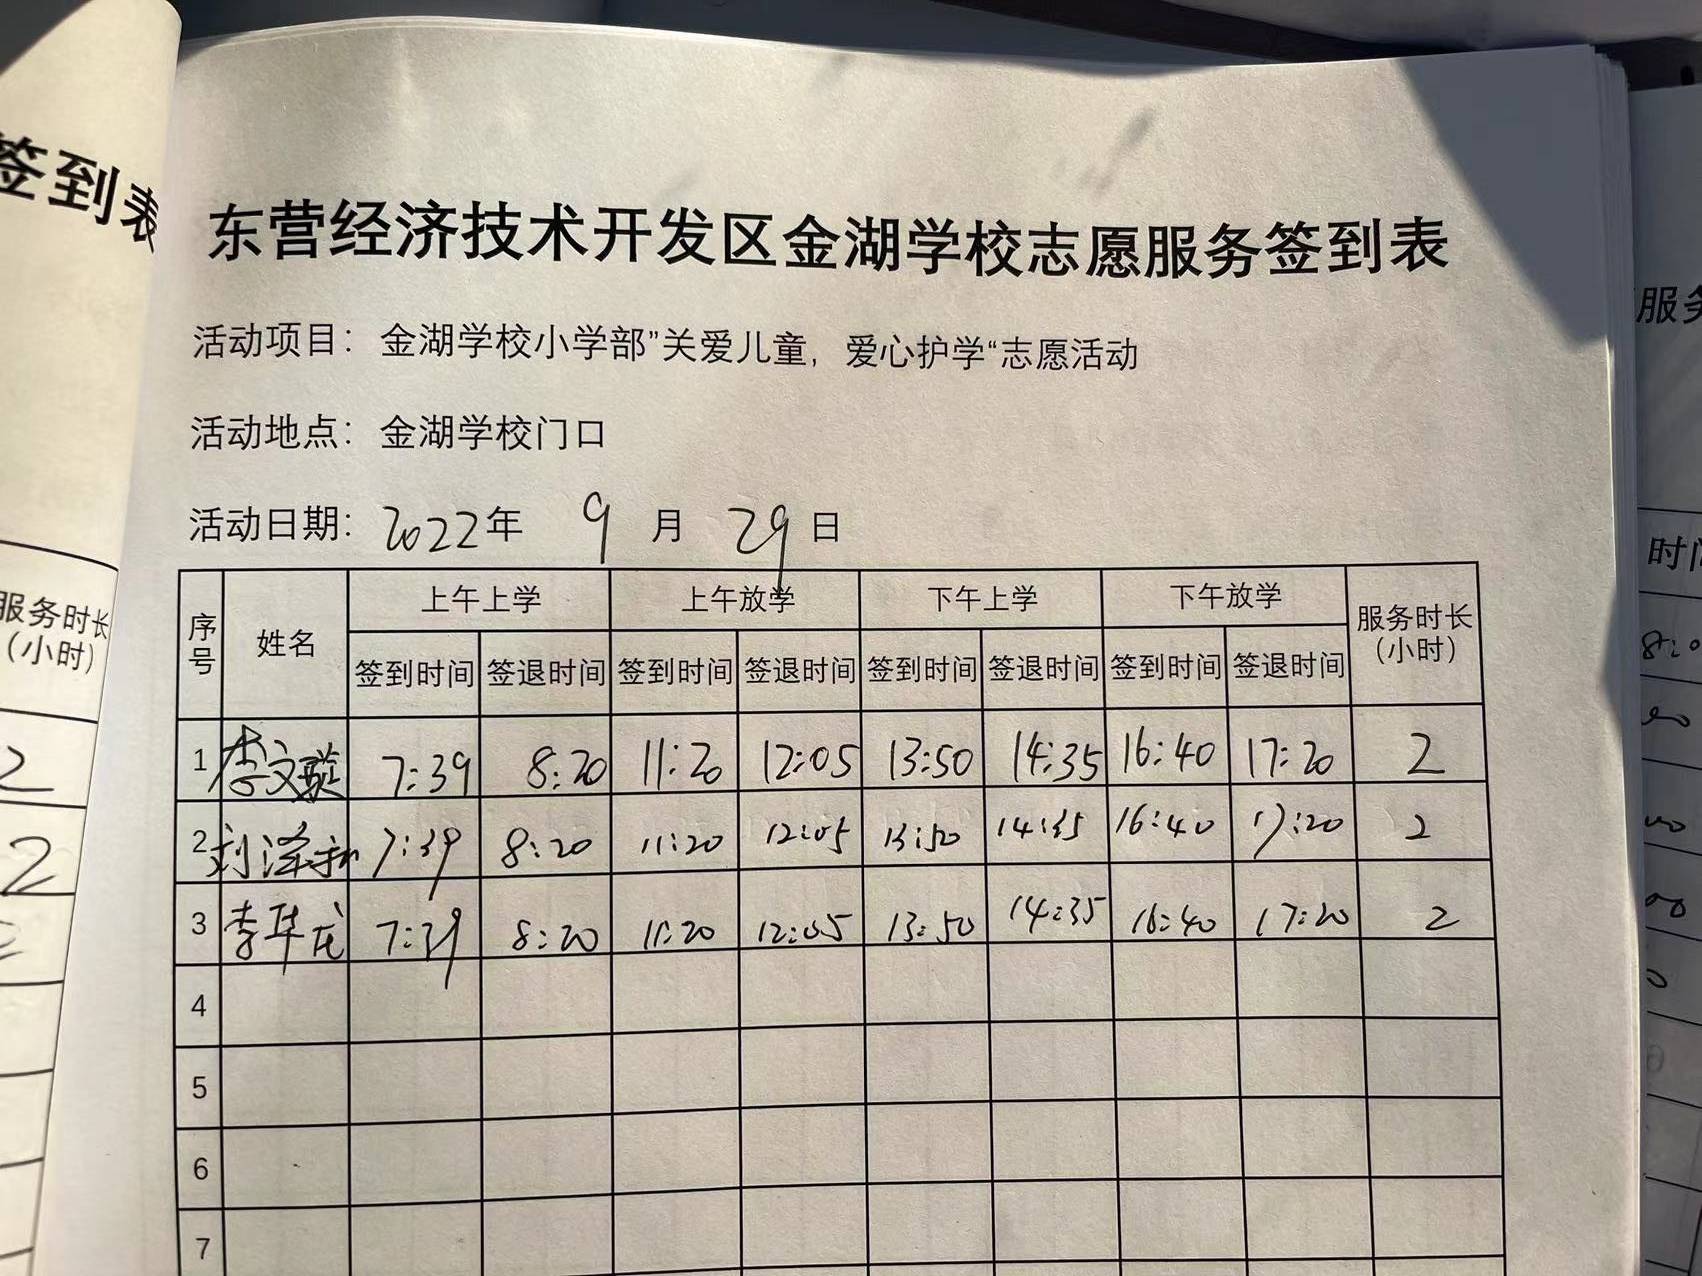 签到表
东营经济技术开发区金湖学校志愿服务签到表
活动项目：金湖学校小学部”关爱儿童，爱心护学“志愿活动
活动地点：金湖学校门口
活动日期：2022年 9 月 29 日
序号 姓名 上午上学 上午放学 下午上学 下午放学 服务时长（小时）
签到时间 签退时间 签到时间 签退时间 签到时间 签退时间 签到时间 签退时间
1 李文 7:39 8:20 11:20 12:05 13:50 14:35 16:40 17:20 2
2 刘泽 7:39 8:20 11:20 12:05 13:50 14:35 16:40 17:20 2
3 李华龙 7:39 8:20 11:20 12:05 13:50 14:35 16:40 17:20 2
4
5
6
7
服务时长
（小时）
2
2
服务
时间
8:0